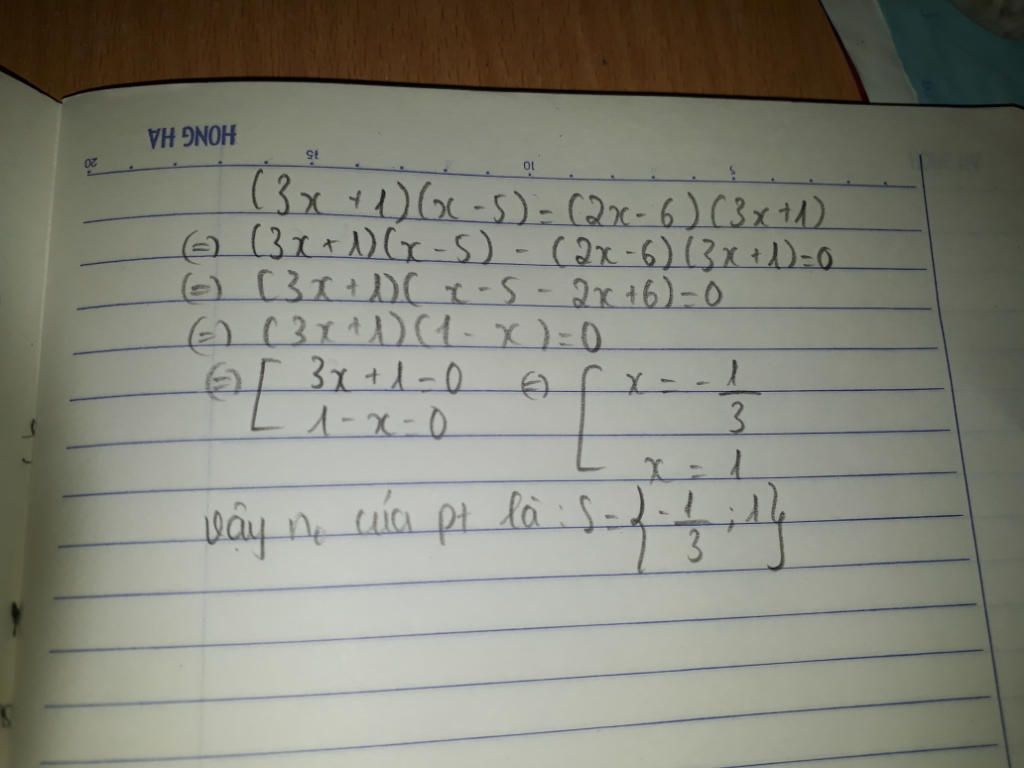 HONG HA
20 15 10 5
(3x + 1)(x - 5) = (2x - 6)(3x + 1)
(=) (3x + 1)(x - 5) - (2x - 6)(3x + 1) = 0
(=) (3x + 1)( x - 5 - 2x + 6) = 0
(=) (3x + 1)(1 - x) = 0
(=) [ 3x + 1 = 0 (=) [ x = - 1/3
1 - x = 0
x = 1
Vậy n0 của pt là : S = { - 1/3 ; 1}